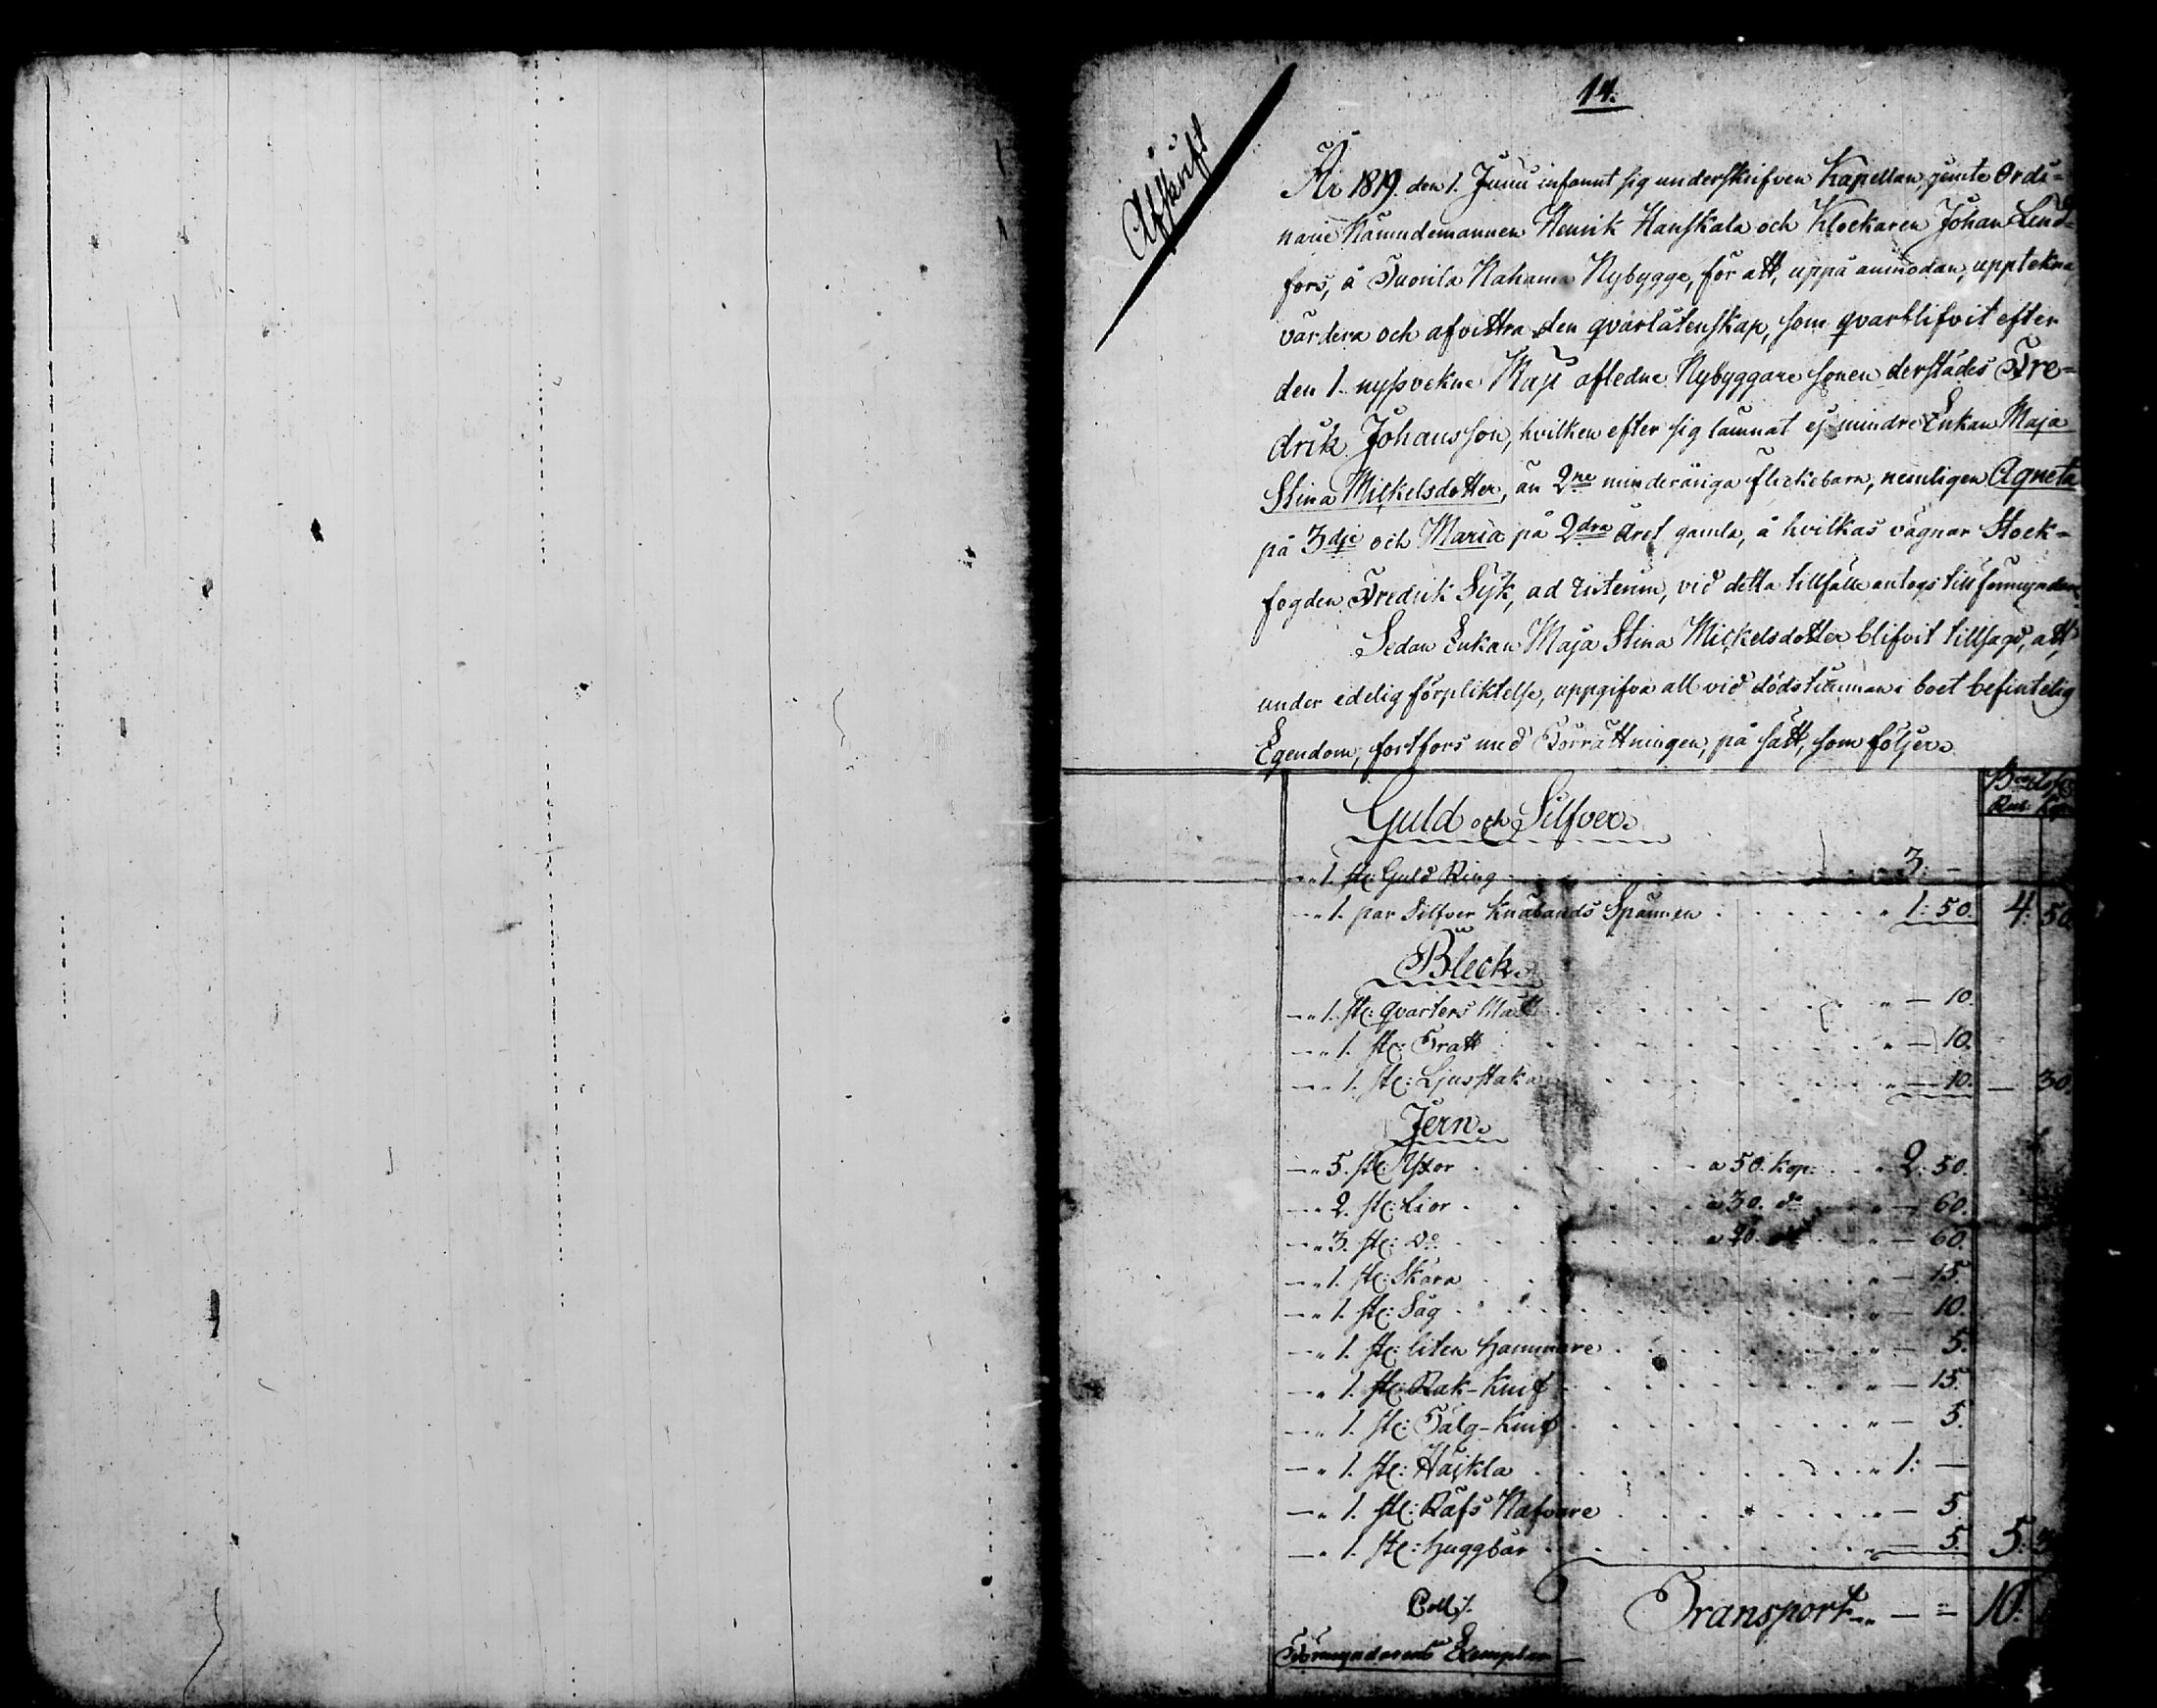 14.
Afskrift
År 1819. den 1. Junii infannt sig underskrifven Kapellan, jemte Ordi-
narie Nämndemannen Henrik Hanskala och Klockaren Johan Lind-
fors, å Tuorila Nahama Nybygge, för att, uppå anmodan, upptekna,
värdera och afvittra den qvarlåtenskap, som qvarblifvit efter
den 1. nyssvekne Maji afledne Nybyggare sonen derstädes Fre-
drik Johansson, hvilken efter sig lämnat ej mindre Enkan Maja
Stina Mickelsdotter, än 2ne minderåriga flickebarn, nemligen Agneta
på 3dje och Maria på 2dra året gamla, å hvilkas vägnar Stock-
fogden Fredrik Syk, ad interim, vid detta tillfälle antogs till förmyndare.
Sedan Enkan Maja Stina Mickelsdotter blifvit tillsagd, att,
under edelig förpliktelse, uppgifva all vid dödstimman i boet befintelig
Egendom, fortfors med Förrättningen, på sätt, som följer.
Guld och Silfver.
Rub: Kop
1. st: Guld Ring 3: —
1. par Silfver Knäbands Spännen 1: 50. 4: 50.
Bleck.
1. st: qvarters Mått — 10.
1. st: Tratt — 10.
1. st: Ljusstake — 10. — 30.
Jern.
5. st: Yxor a 50. kop: 2: 50.
2. st: Lior a 30. do — 60.
3. st: Do a 20. do — 60.
1. st: Skära — 15.
1. st: Såg — 10.
1. st: liten Hammare — 5.
1. st: Rak-Knif — 15.
1. st: Tälg-Knif — 5.
1. st: Häckla 1: —
1. st: Räfs Nafvare — 5.
1. st: Huggbär — 5. 5:
Transport — = 10:
Coll:
Förmyndarens Exemplar